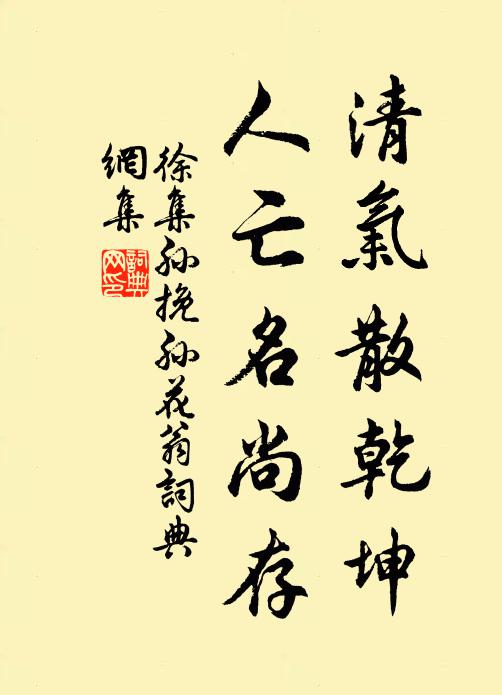 清氣散乾坤
人亡名尚存
徐集孙挽孙花翁詞典
網集
詞典
网印